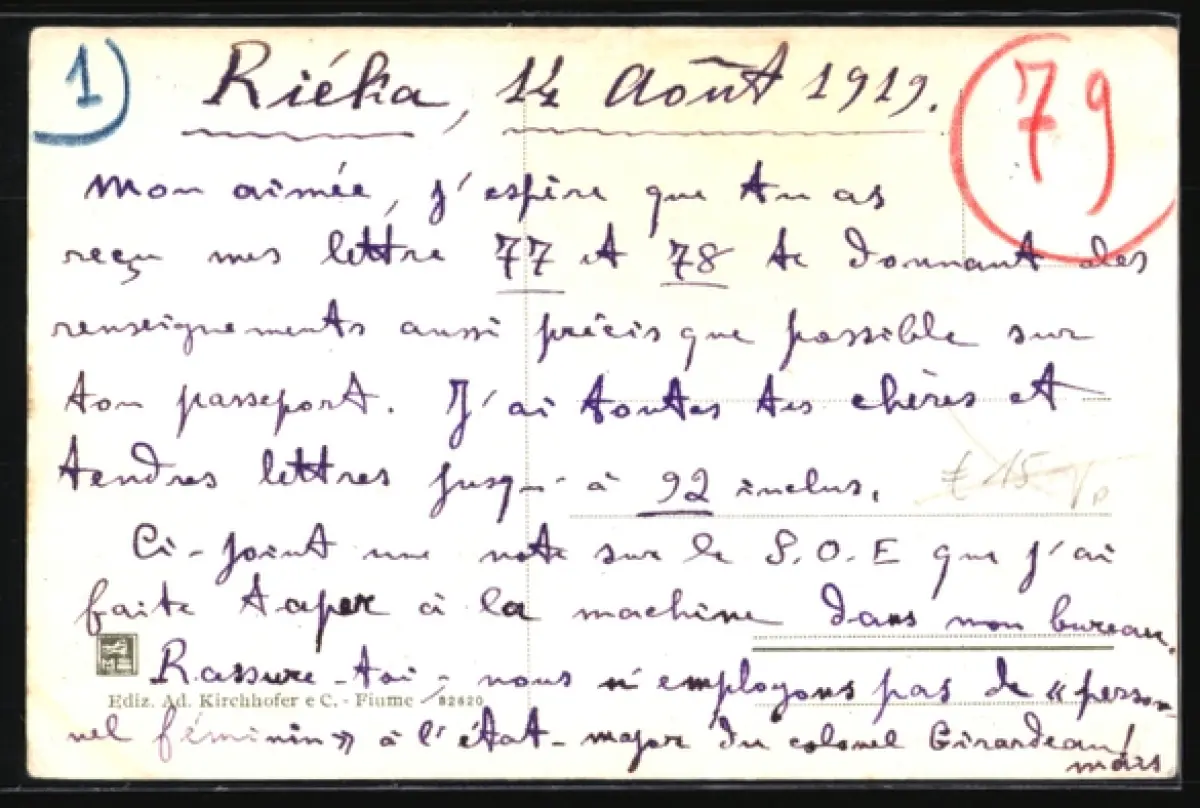 1)
Riéka, 14 Août 1919.
79
Mon aimée, j'espère que tu as
reçu mes lettre 77 et 78 te donnant des
renseignements aussi précis que possible sur
ton passeport. J'ai toutes tes chères et
tendres lettres jusqu'à 92 inclus.
€ 15
Ci-joint une note sur le S.O.E que j'ai
faite taper à la machine dans mon bureau.
Rassure-toi, nous n'employons pas de « person-
Ediz. Ad. Kirchhofer e C. - Fiume 82620
nel féminin » à l'état-major du colonel Girardeau!
mais